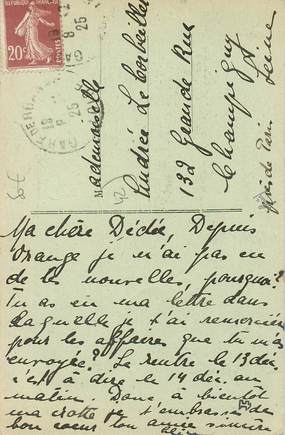 RÉPUBLIQUE FRANÇAISE
20c
POSTES
Mademoiselle
Andrée Le
132 Grande Rue
Champigny
près de Paris Seine
42
Ma chère Dédée, Depuis
Orange je n'ai pas eu
de tes nouvelles, pourquoi?
Tu as eu ma lettre dans
laquelle je t'ai remercié
pour les affaires que tu m'as
envoyée? Je rentre le 13 déc
c'est à dire le 14 déc. au
matin. Donc à bientôt
ma crotte je t'embrasse de
bon coeur ton amie sincère